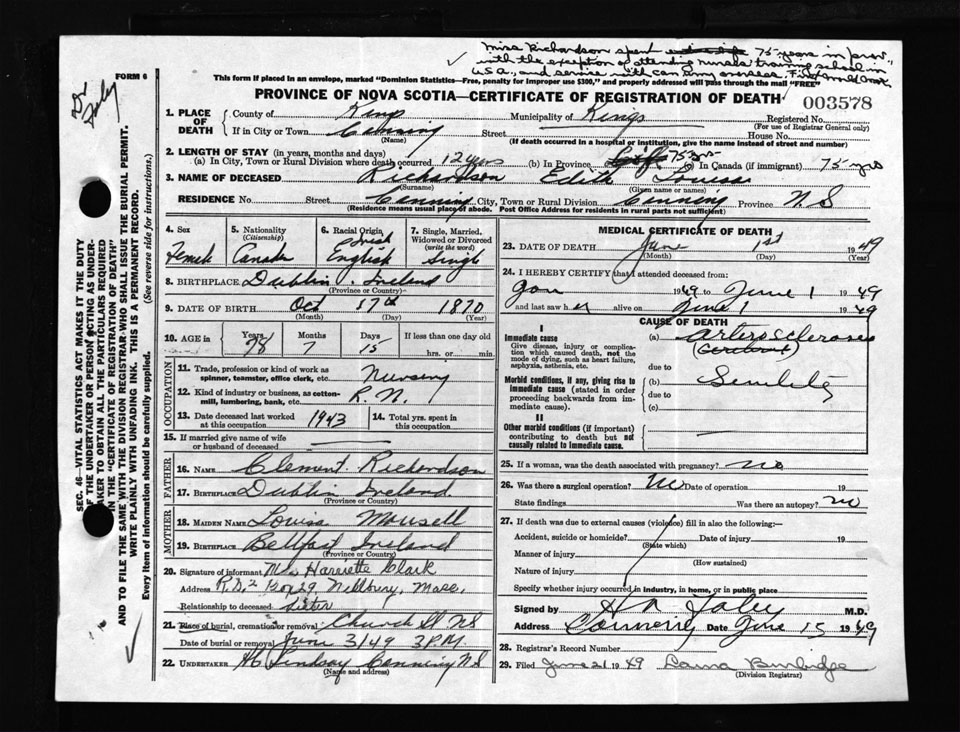 Miss Richardson spent 75 years in prov.
with the exception of attending nurses training school in
U.S.A., and service with Can army overseas.
Dr Foley
FORM 6
This form if placed in an envelope, marked "Dominion Statistics—Free, penalty for improper use $300," and properly addressed will pass through the mail "FREE"
PROVINCE OF NOVA SCOTIA—CERTIFICATE OF REGISTRATION OF DEATH
003578
1. PLACE OF DEATH County of Kings Municipality of Kings Registered No.
(For use of Registrar General only)
If in City or Town Canning Street House No.
(Name) (If death occurred in a hospital or institution, give the name instead of street and number)
2. LENGTH OF STAY (in years, months and days)
(a) In City, Town or Rural Division where death occurred 12 yrs (b) In Province Life 75 yrs (c) In Canada (if immigrant) 75 yrs
3. NAME OF DECEASED Richardson Edith Louisa
(Surname) (Given name or names)
RESIDENCE No. Street Canning City, Town or Rural Division Canning Province N.S
(Residence means usual place of abode. Post Office Address for residents in rural parts not sufficient)
4. Sex Female
5. Nationality (Citizenship) Canada
6. Racial Origin Irish English
7. Single, Married, Widowed or Divorced (write the word) Single
8. BIRTHPLACE Dublin Ireland
(Province or Country)
9. DATE OF BIRTH Oct 17th 1870
(Month) (Day) (Year)
10. AGE in Years 78 Months 7 Days 15 If less than one day old
hrs. or min.
OCCUPATION
11. Trade, profession or kind of work as spinner, teamster, office clerk, etc. Nursing
12. Kind of industry or business, as cotton-mill, lumbering, bank, etc. R.N.
13. Date deceased last worked at this occupation 1943
14. Total yrs. spent in this occupation
15. If married give name of wife or husband of deceased
FATHER
16. NAME Clement Richardson
17. BIRTHPLACE Dublin Ireland
(Province or Country)
MOTHER
18. MAIDEN NAME Louisa Mousell
19. BIRTHPLACE Belfast Ireland
(Province or Country)
20. Signature of informant Mrs Harriette Clark
Address R.D.2 Box 29 Millbury, Mass.
Relationship to deceased Sister
21. Place of burial, cremation or removal Church St NS
Date of burial or removal June 3/49 3 P.M.
22. UNDERTAKER H Lindsay Canning N.S
(Name and address)
MEDICAL CERTIFICATE OF DEATH
23. DATE OF DEATH June 1st 1949
(Month) (Day) (Year)
24. I HEREBY CERTIFY that I attended deceased from:
Jan 1949 to June 1 1949
and last saw her alive on June 1 1949
CAUSE OF DEATH
I
Immediate cause
Give disease, injury or complication which caused death, not the mode of dying, such as heart failure, asphyxia, asthenia, etc.
(a) Arterosclerosis
(Cerebral)
due to
Morbid conditions, if any, giving rise to immediate cause (stated in order proceeding backwards from immediate cause).
(b) Senility
due to
(c)
II
Other morbid conditions (if important) contributing to death but not causally related to immediate cause.
25. If a woman, was the death associated with pregnancy? no
26. Was there a surgical operation? No Date of operation 19
State findings Was there an autopsy? no
27. If death was due to external causes (violence) fill in also the following:—
Accident, suicide or homicide? Date of injury 19
(State which)
Manner of injury
(How sustained)
Nature of injury
Specify whether injury occurred in industry, in home, or in public place
Signed by M.D.
Address Canning Date June 15 1949
28. Registrar's Record Number
29. Filed June 21 1949 Laura Burbidge
(Division Registrar)
SEC. 46—VITAL STATISTICS ACT MAKES IT THE DUTY
OF THE UNDERTAKER OR PERSON ACTING AS UNDER-
TAKER TO OBTAIN ALL THE PARTICULARS REQUIRED
IN THE "CERTIFICATE OF REGISTRATION OF DEATH"
AND TO FILE THE SAME WITH THE DIVISION REGISTRAR WHO SHALL ISSUE THE BURIAL PERMIT.
WRITE PLAINLY WITH UNFADING INK. THIS IS A PERMANENT RECORD.
Every item of information should be carefully supplied. (See reverse side for instructions.)